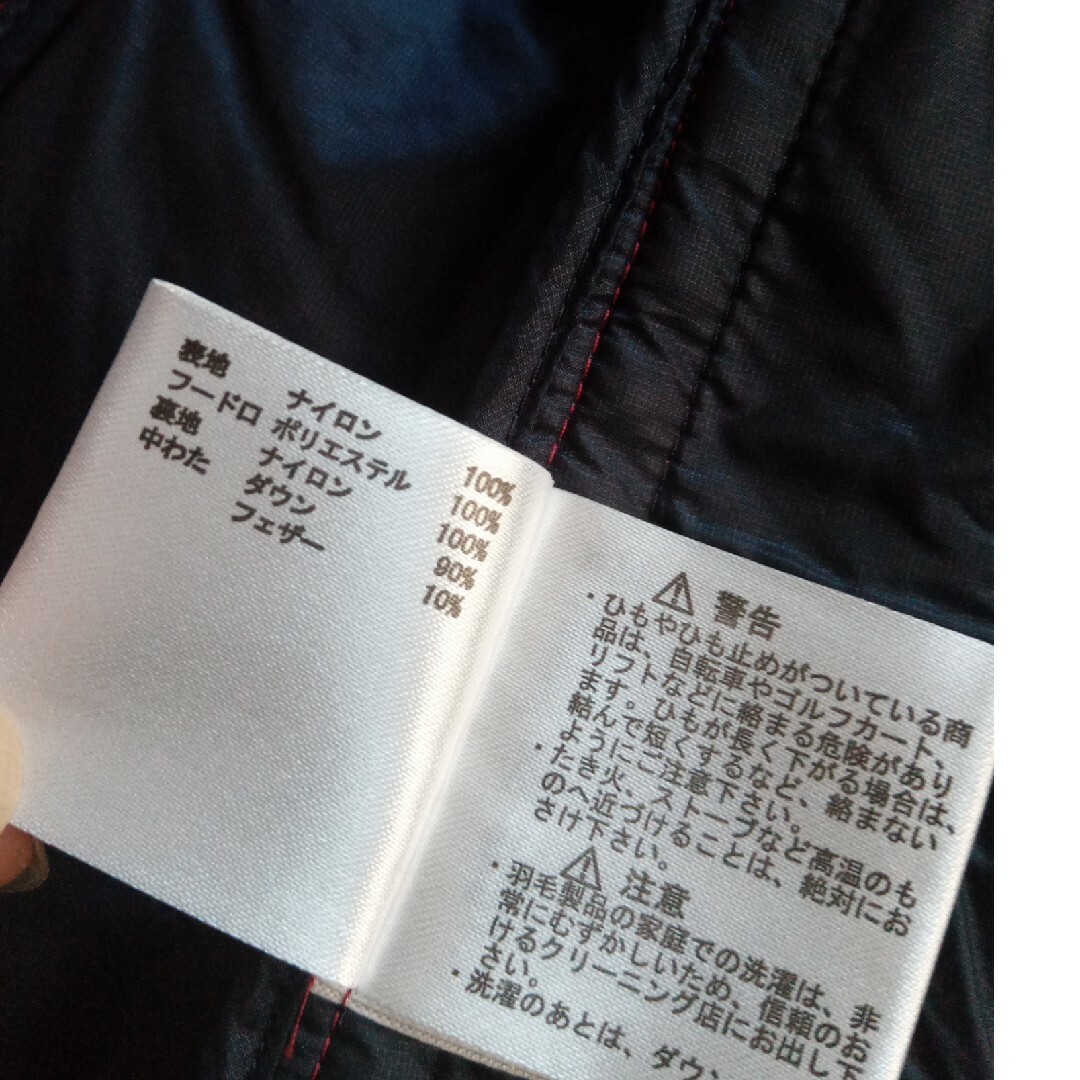 表地 ナイロン 100%
フードロ ポリエステル 100%
裏地 ナイロン 100%
中わた ダウン 90%
フェザー 10%
⚠ 警告
・ひもやひも止めがついている商
品は、自転車やゴルフカート、
リフトなどに絡まる危険があり
ます。ひもが長く下がる場合は、
結んで短くするなど、絡まない
ようにご注意下さい。
・たき火、ストーブなど高温のも
のへ近づけることは、絶対にお
さけ下さい。
⚠ 注意
・羽毛製品の家庭での洗濯は、非
常にむずかしいため、信頼のお
けるクリーニング店にお出し下
さい。
・洗濯のあとは、ダウ